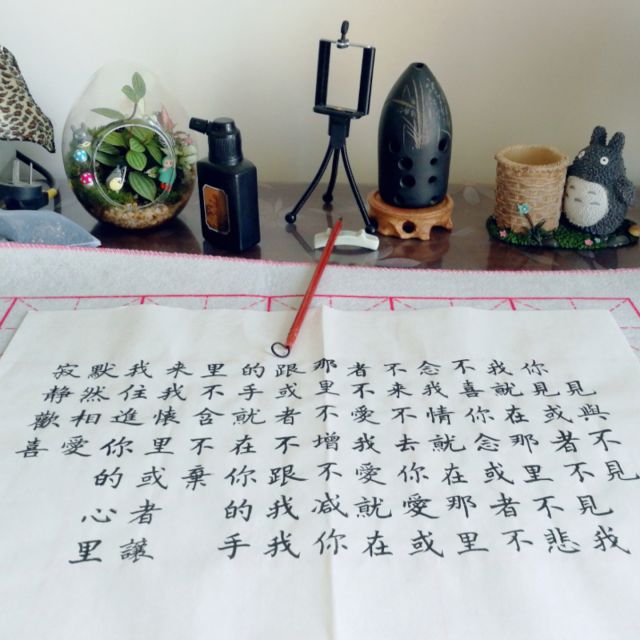 見與不見
你見或者不見我
我就在那里不悲
不喜你念或者不
念我情就在那里
不来不去你愛或
者不愛我愛就在
那里不增不减你
跟或者不跟我我
的手就在你的手
里不舍不棄
来我懷里或者讓
我住進你的心里
默然相愛
寂静歡喜